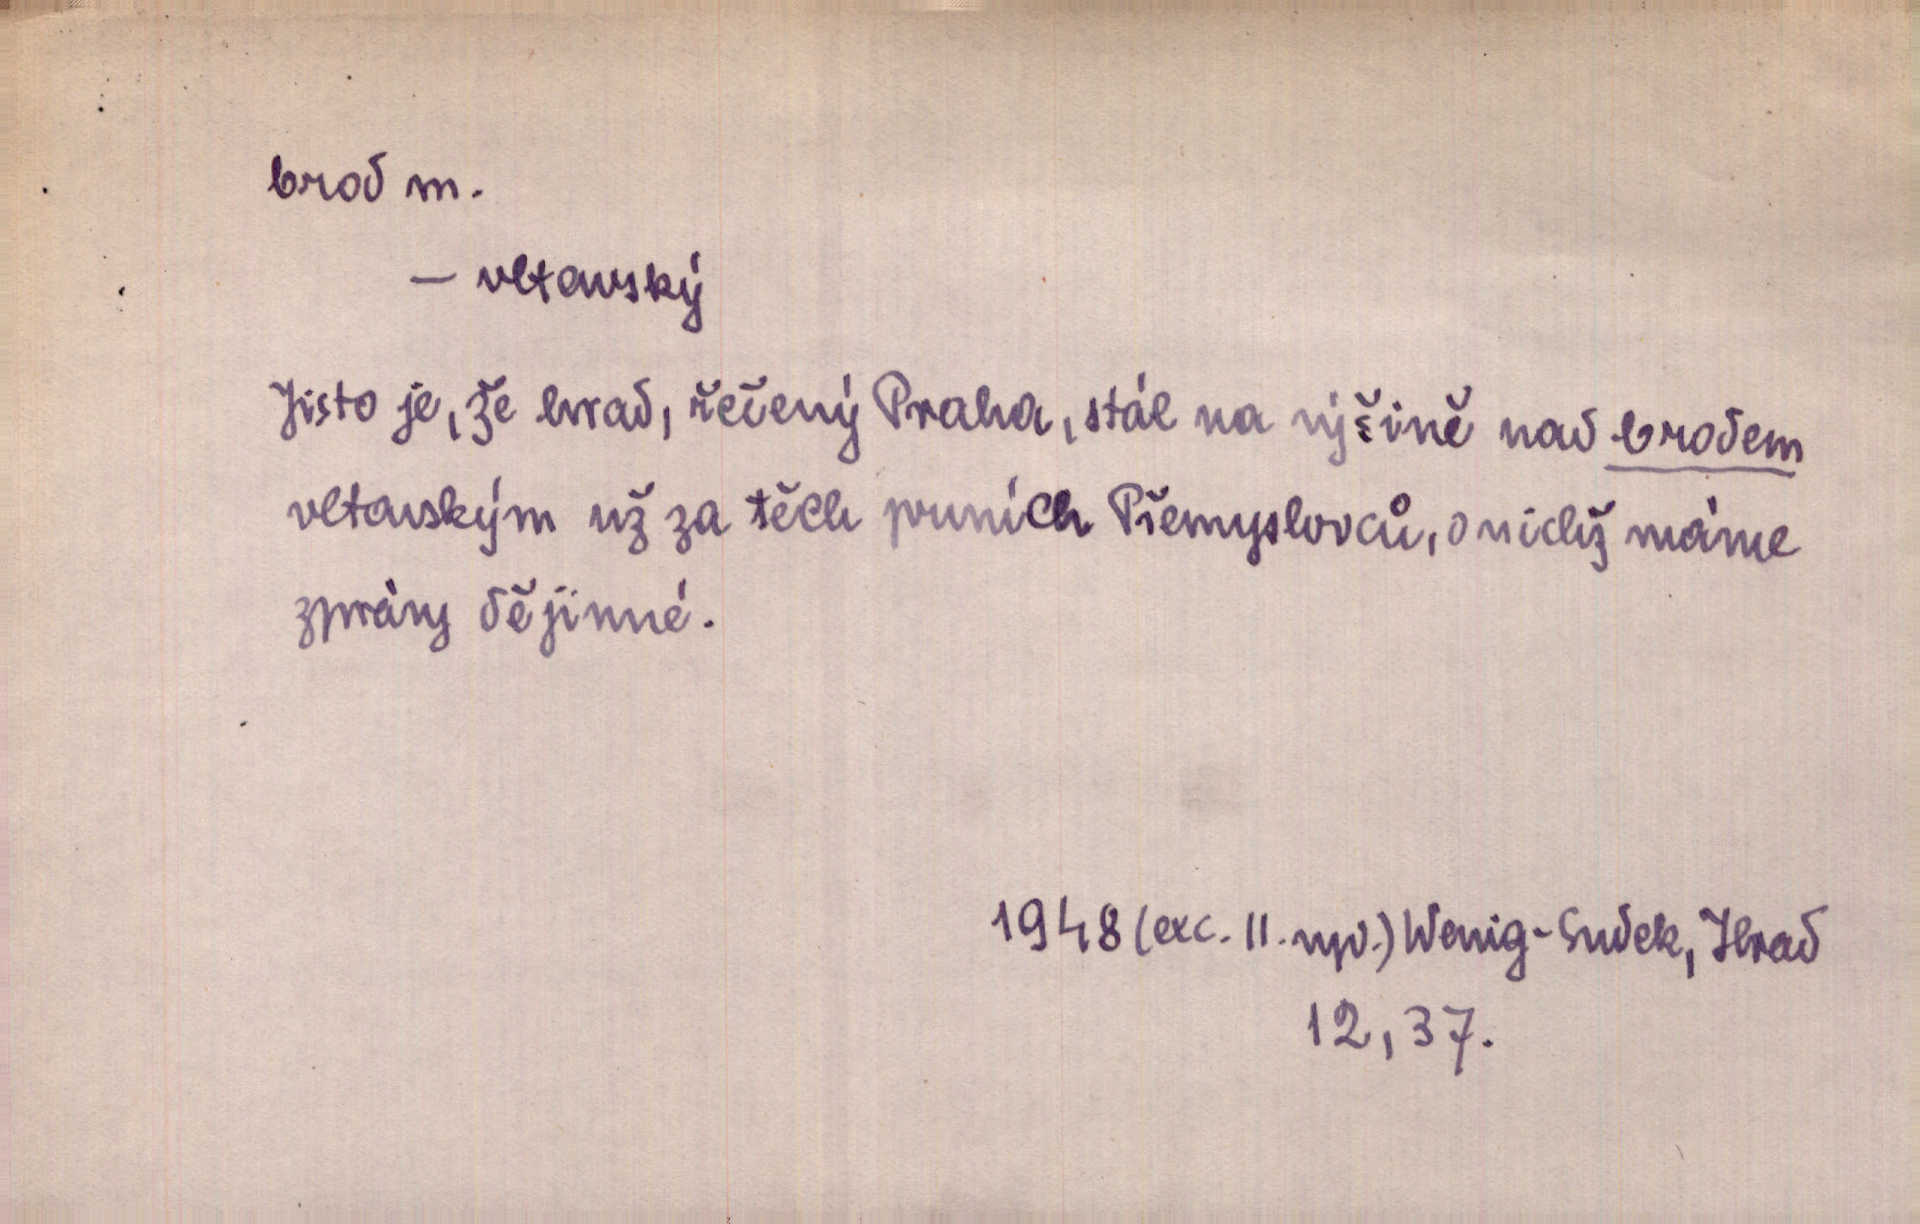 brod m.
— vltavský
Jisto je, že hrad, řečený Praha, stál na výšině nad brodem
vltavským už za těch prvních Přemyslovců, o nichž máme
zprávy dějinné.
1948 (exc. II. vyd.) Wenig-Sudek, Hrad
12, 37.